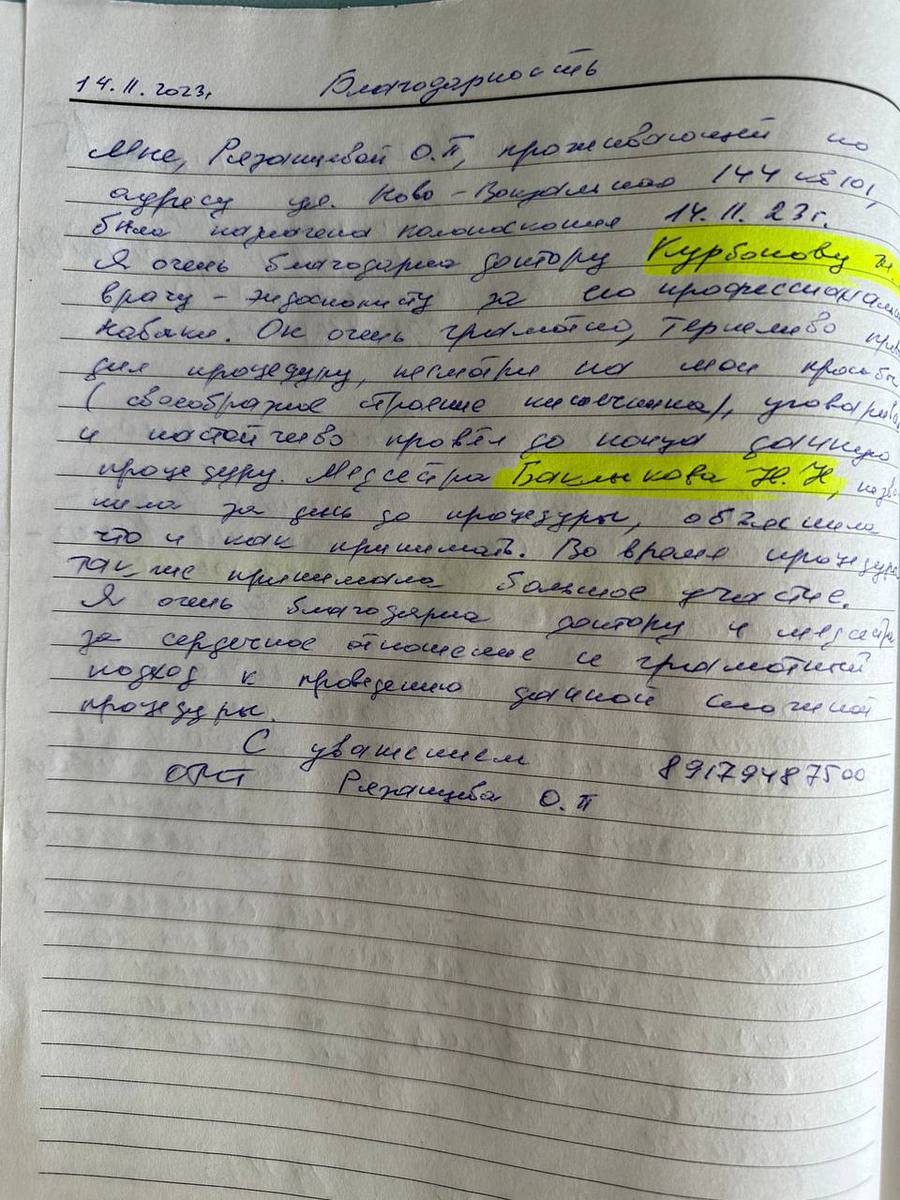 14.11.2023г Благодарность
Мне, Рязанцевой О.П, проживающей по
адресу ул. Ново-Вокзальная 144 кв 101,
была назначена колоноскопия 14.11.23г.
Я очень благодарна доктору Курбонову
врачу-эндоскописту за его профессиональн
навыки. Он очень грамотно, терпеливо пров
дил процедуру, несмотря на мои просьбы
(своеобразное строение кишечника), уговарива
и настойчиво провёл до конца данную
процедуру. Медсестра Баклыкова Н.Н, позво
нила за день до процедуры, объяснила
что и как принимать. Во время процедуры
также принимала большое участие.
Я очень благодарна доктору и медсестре
за сердечное отношение и грамотный
подход к проведению данной сложной
процедуры.
С уважением 89179487500
Рязанцева О.П